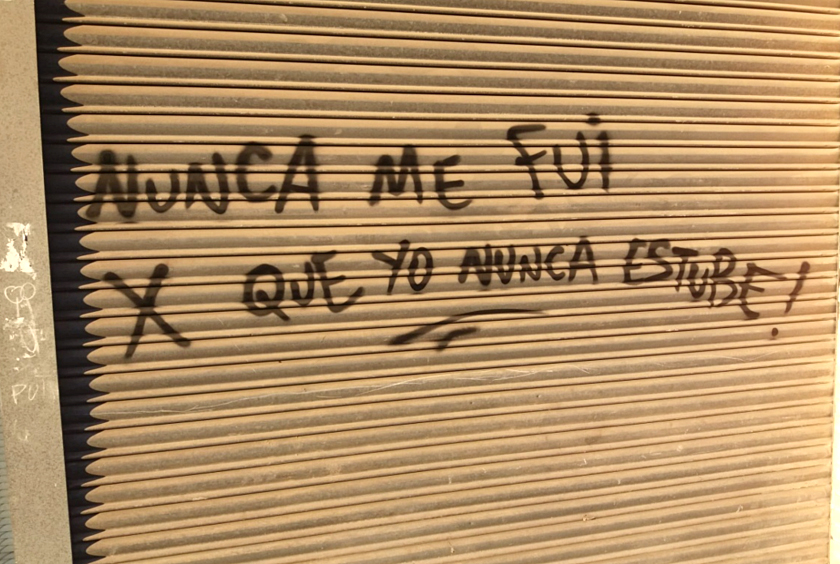 NUNCA ME FUi
X QUE YO NUNCA ESTUBE!